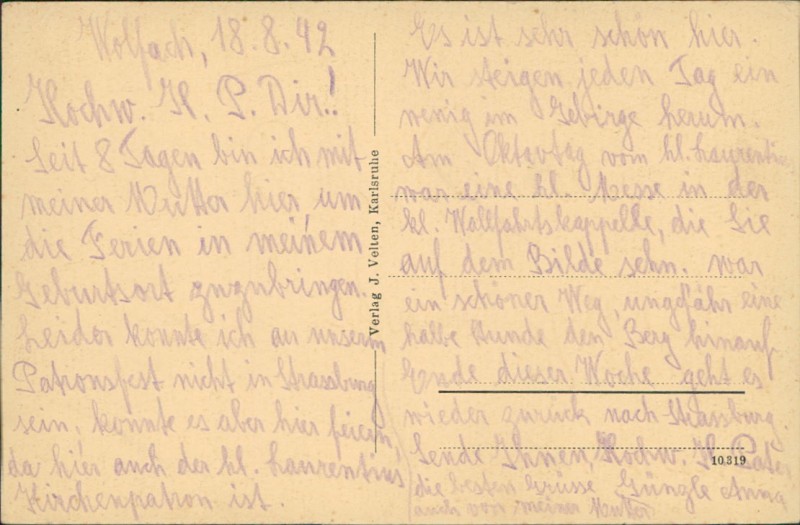 Wolfach, 18.8.42
Hochw. H. P. Dir.!
Seit 8 Tagen bin ich mit
meiner Mutter hier um
die Ferien in meinem
Geburtsort zuzubringen.
Leider konnte ich an unserm
Patronsfest nicht in Strassburg
sein, konnte es aber hier feiern,
da hier auch der hl. Laurentius
Kirchenpatron ist.
Verlag J. Velten, Karlsruhe
Es ist sehr schön hier.
Wir steigen jeden Tag ein
wenig im Gebirge herum.
Am Oktavtag vom hl. Laurentius
war eine hl. Messe in der
kl. Wallfahrtskappelle, die Sie
auf dem Bilde sehn. war
ein schöner Weg, ungefähr eine
halbe Stunde den Berg hinauf
Ende dieser Woche geht es
wieder zurück nach Strassburg.
Sende Ihnen, Hochw. H. Pater
10319
die besten Grüsse Günzle Anna
auch von meiner Mutter